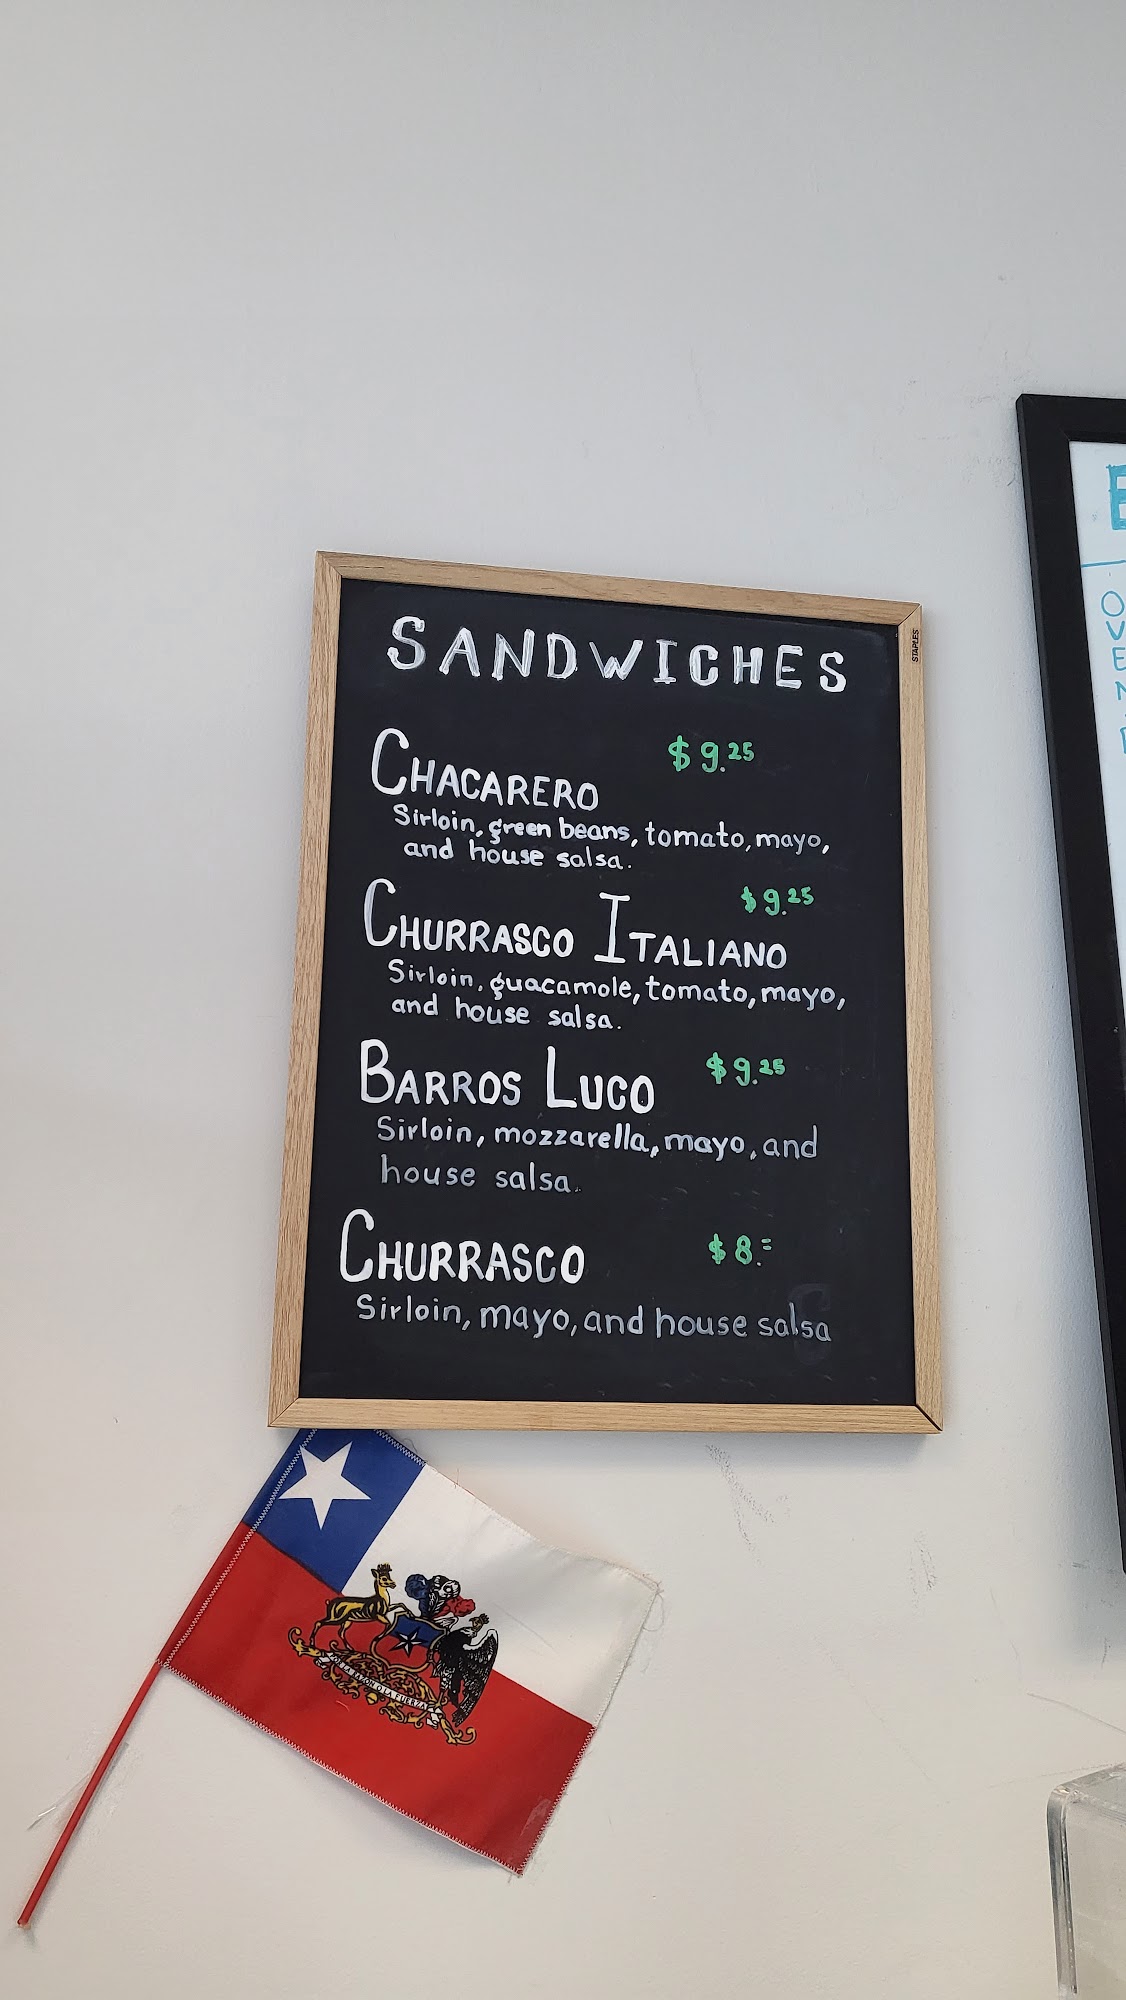 SANDWICHES
STAPLES
CHACARERO $9.25
Sirloin, green beans, tomato, mayo,
and house salsa.
CHURRASCO ITALIANO $9.25
Sirloin, guacamole, tomato, mayo,
and house salsa.
BARROS LUCO $9.25
Sirloin, mozzarella, mayo, and
house salsa.
CHURRASCO $8.=
Sirloin, mayo, and house salsa
POR LA RAZON O LA FUERZA
O
V
E
N